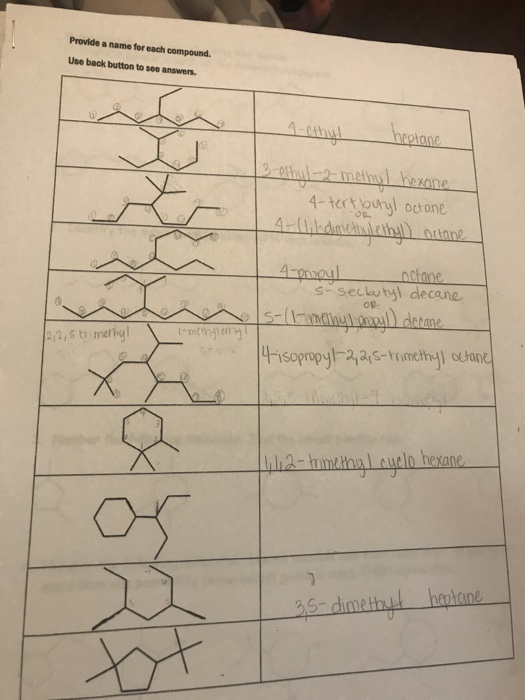 Provide a name for each compound.
Use back button to see answers.
4-ethyl heptane
3-ethyl-2-methyl hexane
4-tertbutyl octane
OR
4-(1,1-dimethylethyl) octane
4-propyl octane
5-secbutyl decane
OR
5-(1-methylpropyl) decane
2,2,5 trimethyl
4-isopropyl-2,2,5-trimethyl octane
1,1,2-trimethyl cyclo hexane
3,5-dimethyl heptane